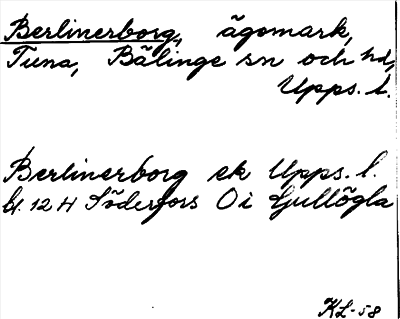 Berlinerborg, ägomark,
Tuna, Bälinge sn och hd,
Upps. l.
Berlinerborg ek Upps. l.
bl. 12 H Söderfors O i Gullögla
KL-58